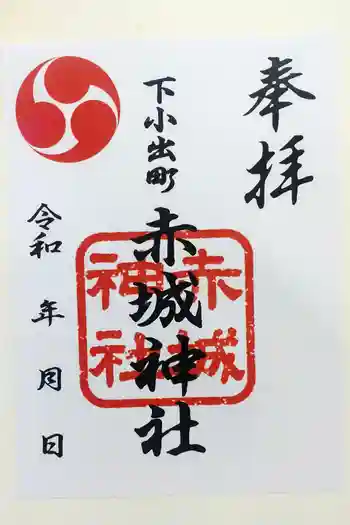 奉拝
下小出町
赤城神社
赤城
神社
令和　年　月　日